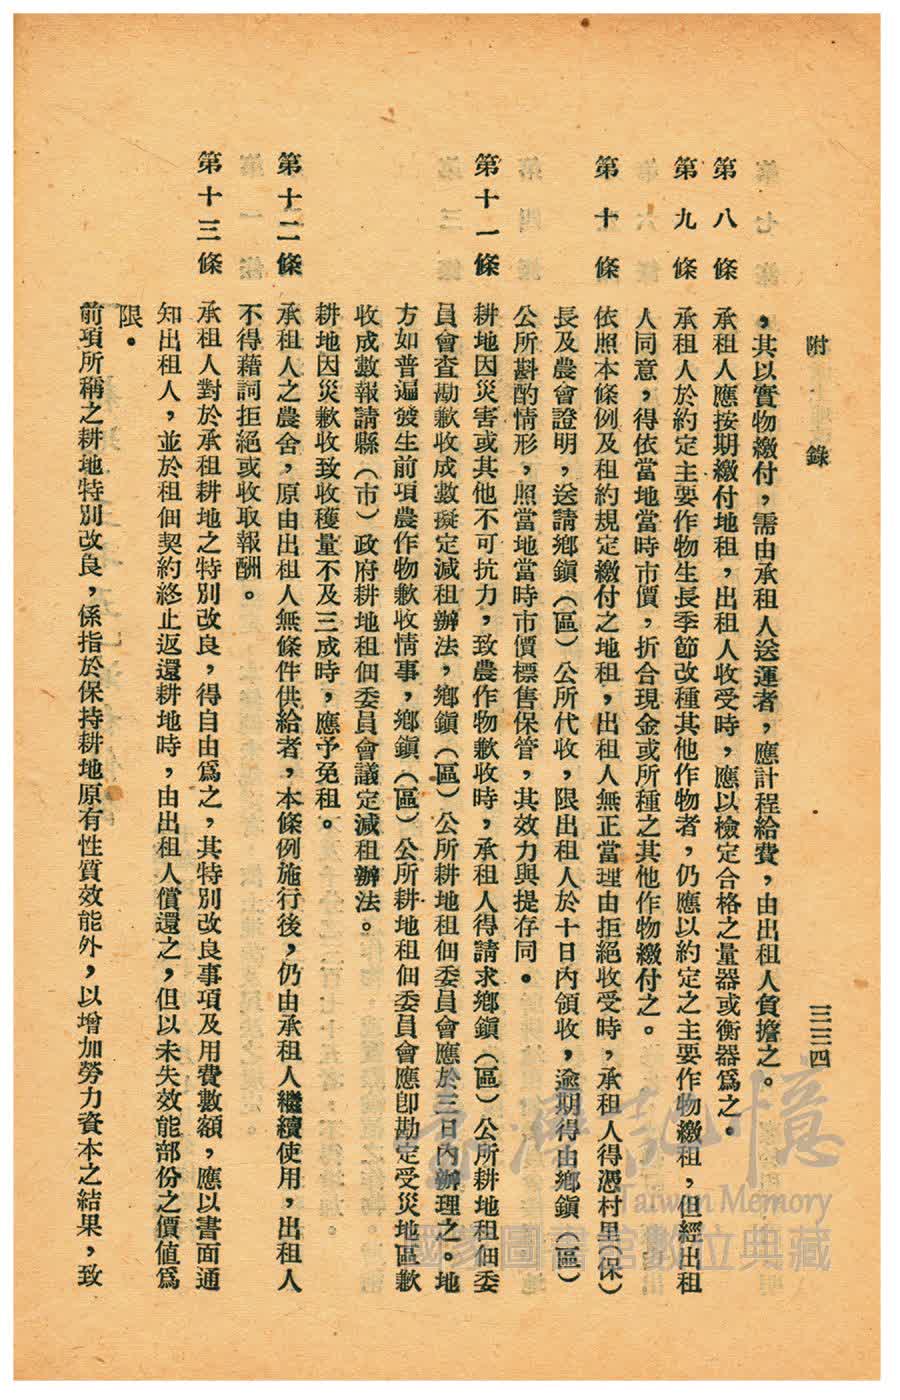 附錄
三三四
，其以實物繳付，需由承租人送運者，應計程給費，由出租人負擔之。
第八條 承租人應按期繳付地租，出租人收受時，應以檢定合格之量器或衡器爲之。
第九條 承租人於約定主要作物生長季節改種其他作物者，仍應以約定之主要作物繳租，但經出租
人同意，得依當地當時市價，折合現金或所種之其他作物繳付之。
第十條 依照本條例及租約規定繳付之地租，出租人無正當理由拒絕收受時，承租人得憑村里（保）
長及農會證明，送請鄉鎭（區）公所代收，限出租人於十日內領收，逾期得由鄉鎭（區）
公所斟酌情形，照當地當時市價標售保管，其效力與提存同。
第十一條 耕地因災害或其他不可抗力，致農作物歉收時，承租人得請求鄉鎭（區）公所耕地租佃委
員會查勘歉收成數擬定減租辦法，鄉鎭（區）公所耕地租佃委員會應於三日內辦理之。地
方如普遍發生前項農作物歉收情事，鄉鎭（區）公所耕地租佃委員會應卽勘定受災地區歉
收成數報請縣（市）政府耕地租佃委員會議定減租辦法。
耕地因災歉收致收穫量不及三成時，應予免租。
第十二條 承租人之農舍，原由出租人無條件供給者，本條例施行後，仍由承租人繼續使用，出租人
不得藉詞拒絕或收取報酬。
第十三條 承租人對於承租耕地之特別改良，得自由爲之，其特別改良事項及用費數額，應以書面通
知出租人，並於租佃契約終止返還耕地時，由出租人償還之，但以未失效能部份之價值爲
限。
前項所稱之耕地特別改良，係指於保持耕地原有性質效能外，以增加勞力資本之結果，致
臺灣記憶
Taiwan Memory
國家圖書館數位典藏